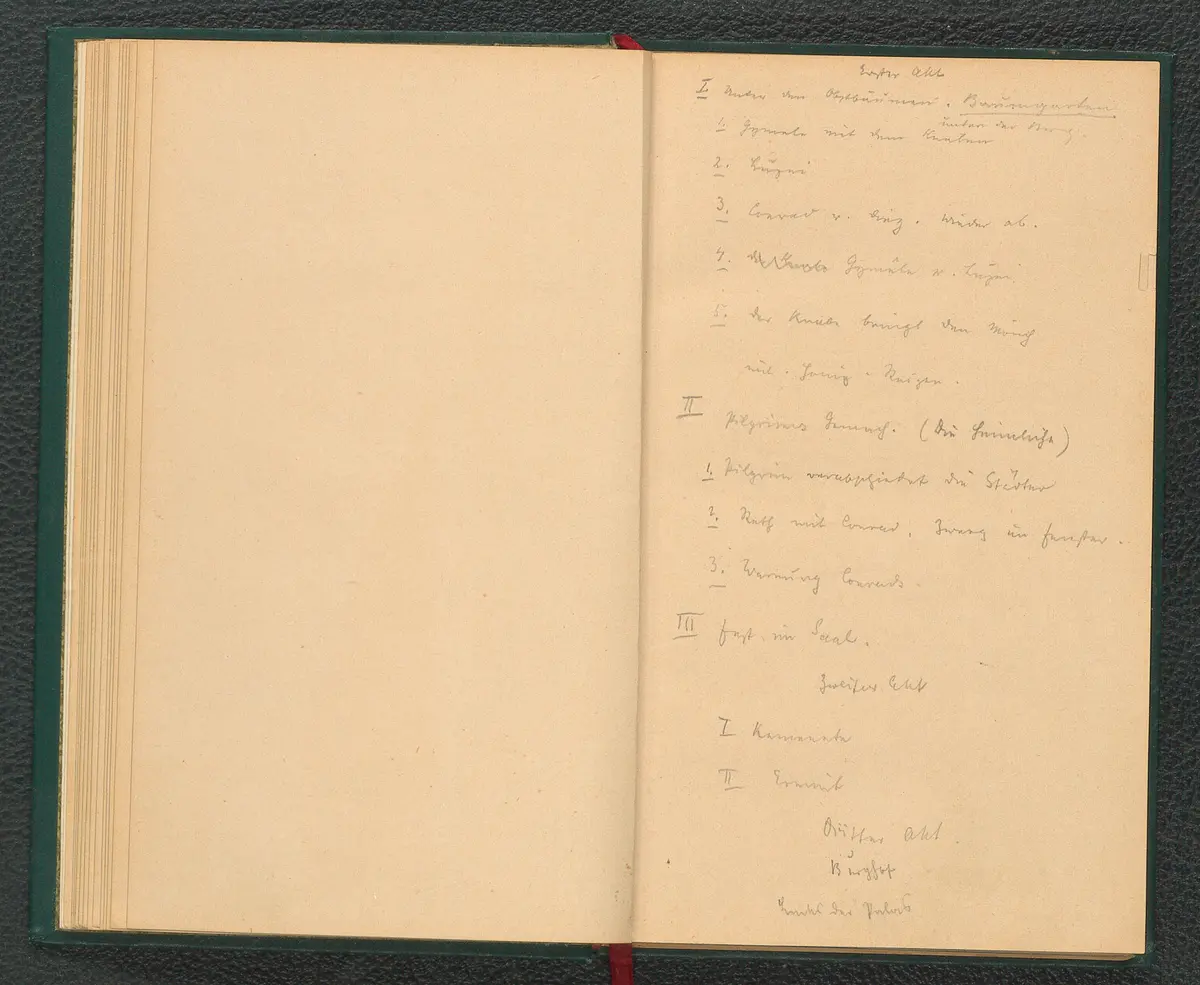 Erster Akt
I. Unter den Obstbäumen. Baumgarten
unter der Burg.
1. mit dem Knaben
2. Luzei
3. Conrad u. wieder ab.
4. u. Luzei.
5. der Knabe bringt den Mönch
mit. Honig. Reigen.
II Pilgrims Gemach. (Die Heimliche)
1. Pilgrim verabschiedet die Städter
2. Rath mit Conrad, Zwerg im Fenster.
3. Warnung Conrads.
III Fest im Saal.
Zweiter Akt
I Kemenate
II Eremit
Dritter Akt.
Burghof
Links der Palas